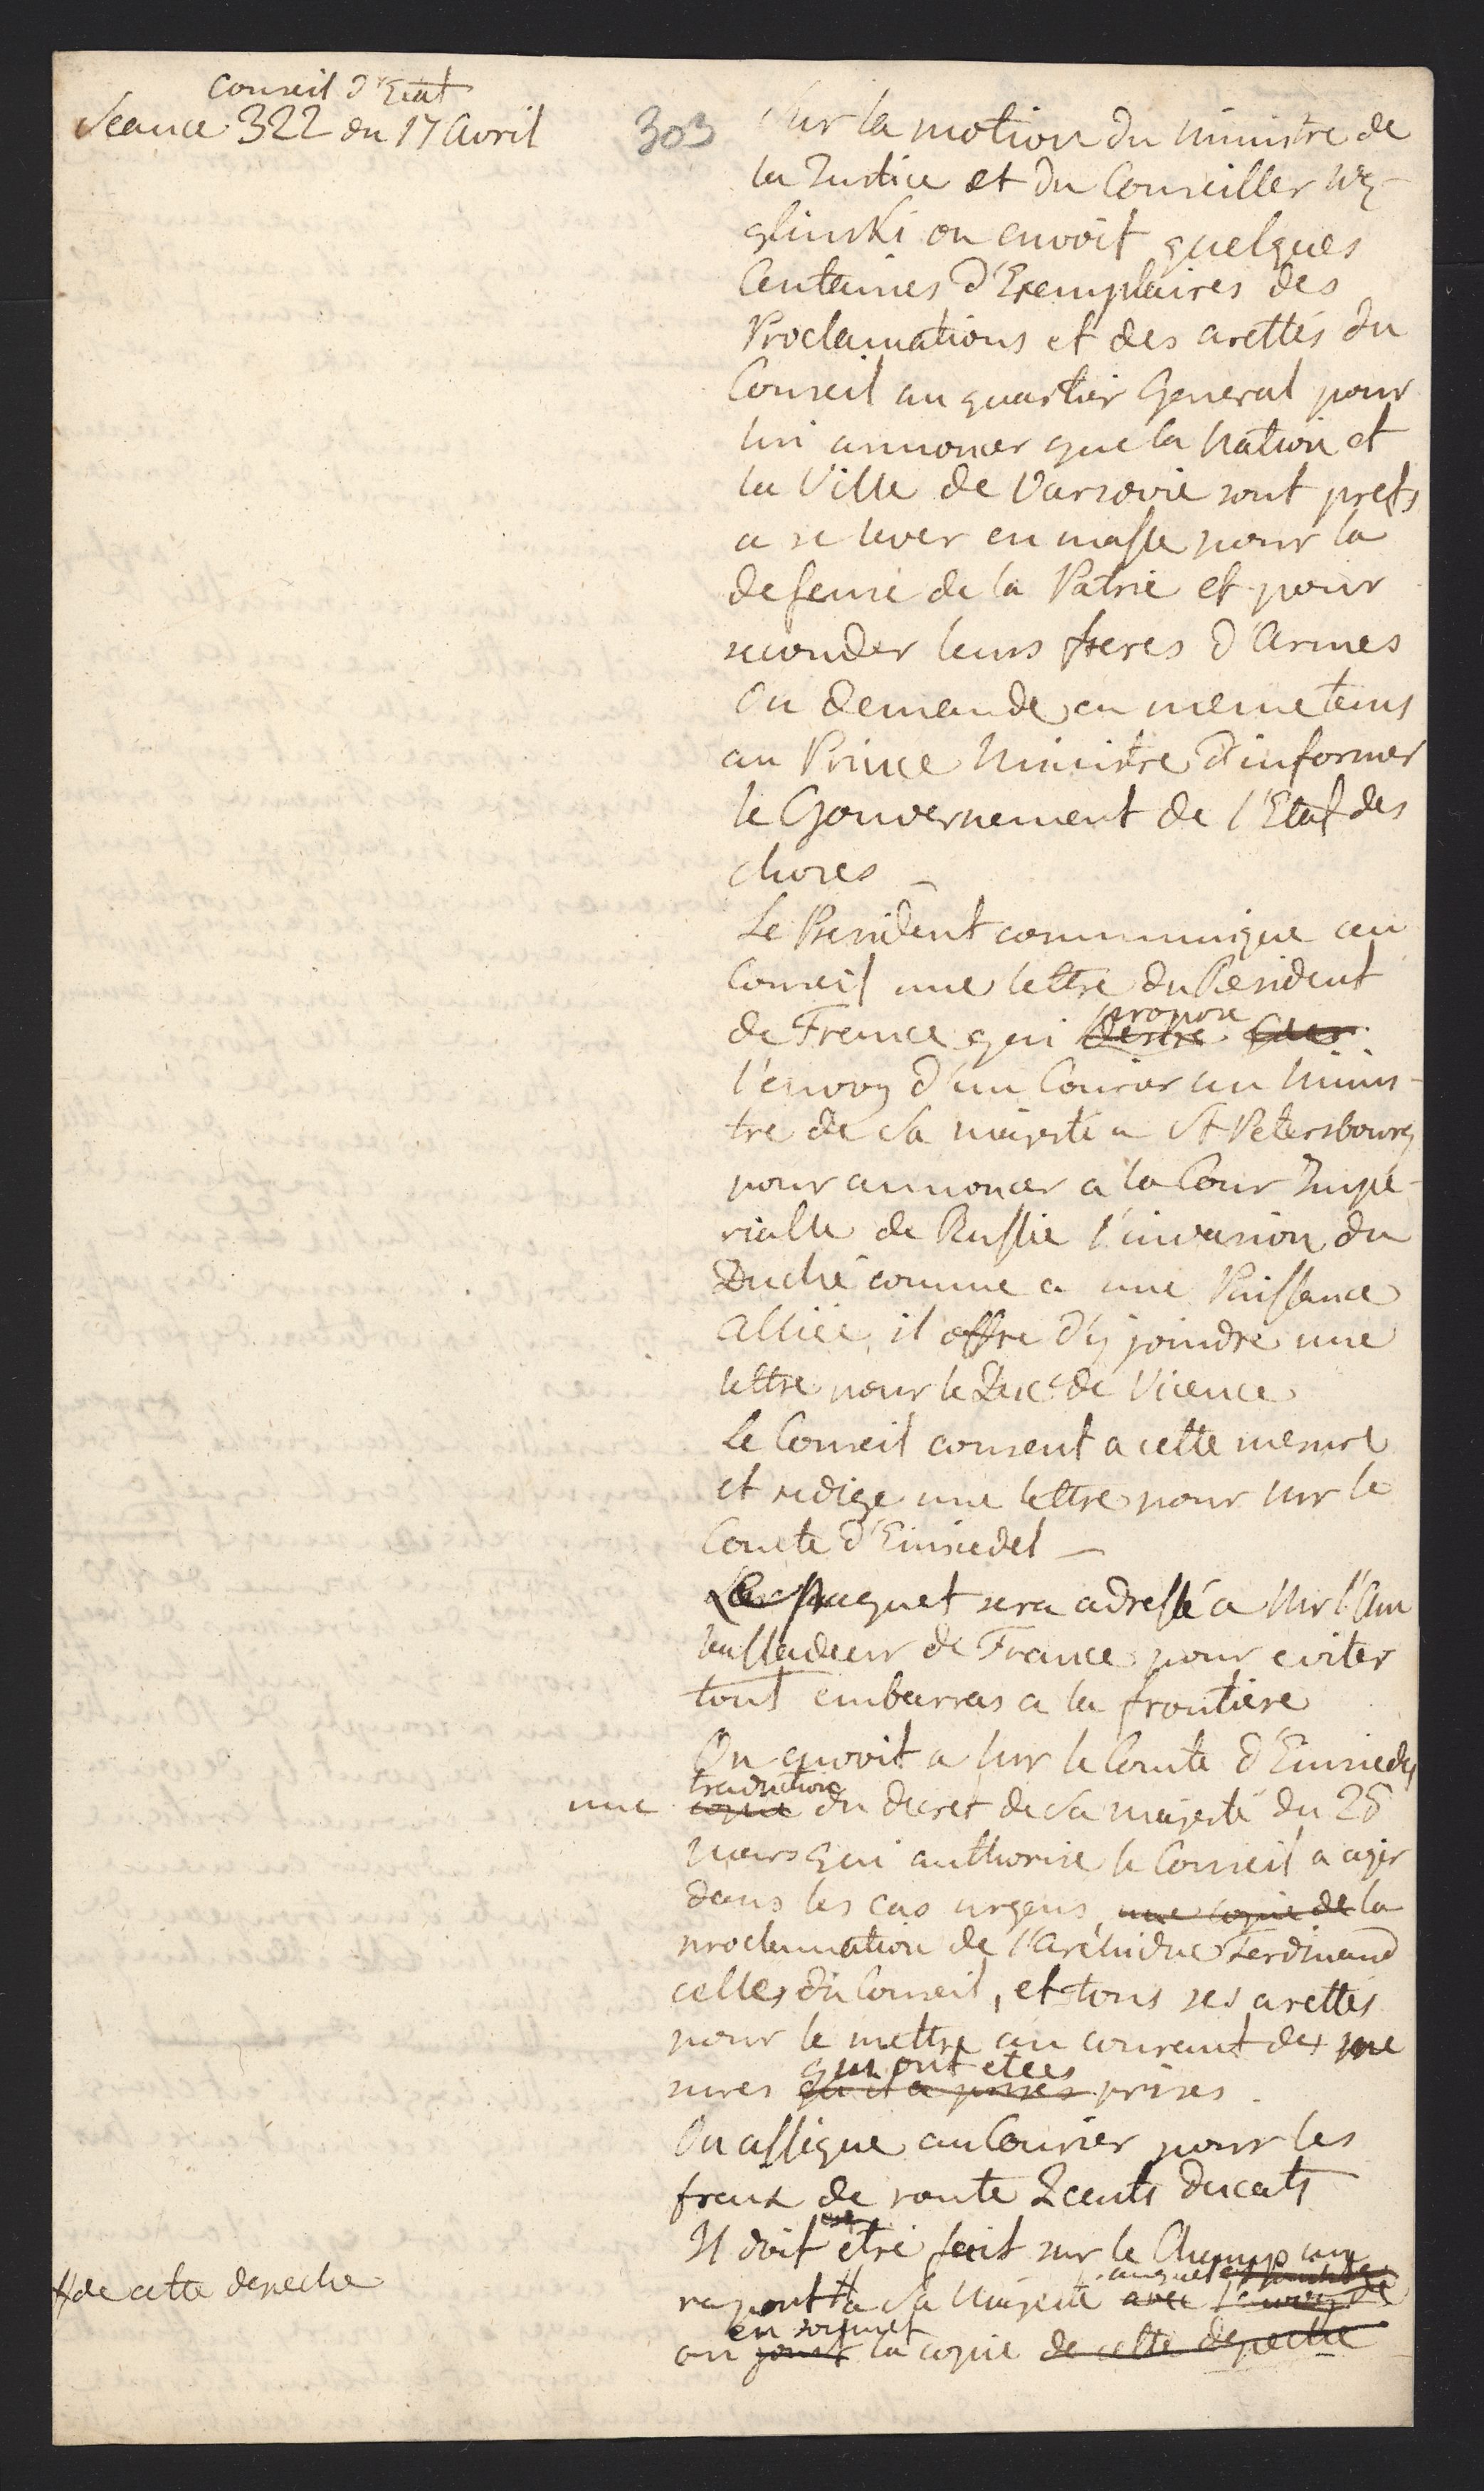 Conseil d'Etat
Seance 322 du 17 Avril
303
Sur la motion du Ministre de
la Justice et du Conseiller Wę-
glinski on envoit quelques
Centaines d'Exemplaires des
Proclamations et des arettés du
Conseil au quartier General pour
lui annoncer que la Nation et
la Ville de Varsovie sont prets
a se lever en masse pour la
defense de la Patrie et pour
seconder leurs freres d'Armes
On demande en meme tems
au Prince Ministre d'informer
le Gouvernement de l'Etat des
choses –
Le President communique au
Conseil une lettre du Resident
propose
de France qui
l'envoy d'un Courier au Minis-
tre de Sa Majesté a St Petersbourg
pour annoncer a la Cour Impe-
rialle de Russie l'invasion du
Duché comme a une Puissance
Alliée, il offre d'y joindre une
lettre pour le Duc de Vicence
Le Conseil consent a cette mesure
et redige une lettre pour Mr le
Comte d'Einsiedel –
Le Paquet sera adressé a Mr l'Am
bassadeur de France pour eviter
tout embarras a la frontiere
On envoit a Mr le Comte d'Einsiedel
traduction
une copie du decret de Sa Majesté du 28
Mars qui authorise le Conseil a agir
dans les cas urgens, une copie de la
proclamation de l'Archiduc Ferdinand
celles du Conseil, et tous ses arettés
pour le mettre au courant des me
qui ont etees
sures qu'il a prises prises.
On assigne au Courier pour les
fraix de route 2 cents ducats
Il doit etre fait sur le Champ un
auquel
raport # a Sa Majesté avec l'envoy de
# de cette depeche
en soumet
on joint la copie de cette depeche